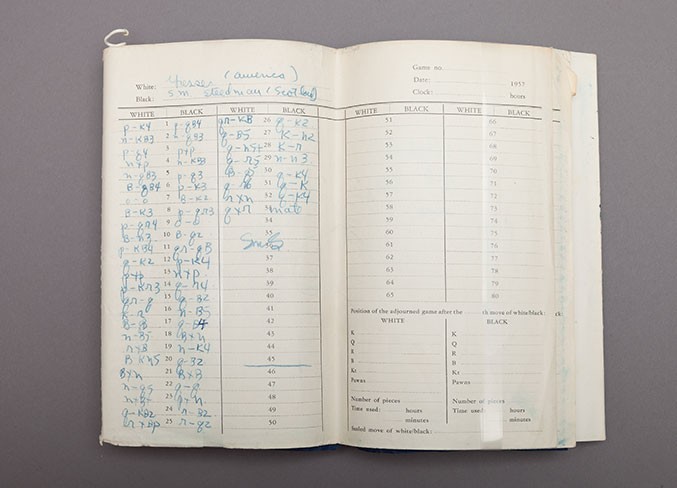 White: (america)
Black: S M Steedman (Scotland)
WHITE BLACK WHITE BLACK
p-K4 1 p-qB4 qr-KB 26 q-K2
n-KB3 2 n-qB3 q-B5 27 K-n2
p-q4 3 pxp q-n5+ 28 K-r
nxp 4 n-KB3 q-r5 29 n-n3
n-qB3 5 p-q3 30 q-K4
B-qB4 6 p-K3 31 q-K
o-o 7 B-K2 rxn 32 q-K4
B-K3 8 p-qr3 qxr 33 mate
p-qr4 9 o-o 34
B-n3 10 B-q2 35
p-KB4 11 qr-qB
q-K2 12 p-KR4 37
pxp 13 nxp 38
p-Kr3 14 39
qr-q 15 q-B2 40
K-r 16 n-B5 41
17 42
n-B5 18 Bxn 43
rxB 19 n-K4 44
B-Kn5 20 q-B2 45
Bxn 21 BxB 46
n-q5 22 q-q 47
nxB+ 23 qxn 48
q-KB2 24 r-B2 49
rxBp 25 r-q2 50
Game no.
Date: 195?
Clock: hours
WHITE BLACK WHITE BLACK
51 66
52 67
53 68
54 69
55 70
56 71
57 72
58 73
59 74
60 75
61 76
62 77
63 78
64 79
65 80
Position of the adjourned game after the th move of white/black:
WHITE BLACK
K K
Q Q
R R
B B
Kt Kt
Pawns Pawns
Number of pieces Number of pieces
Time used: hours Time used: hours
minutes minutes
Sealed move of white/black: